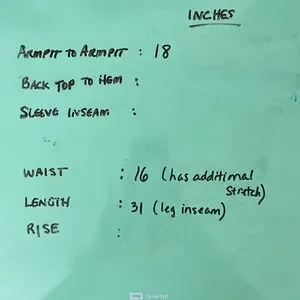 INCHES
ARMPIT TO ARMPIT : 18
BACK TOP TO HEM :
SLEEVE INSEAM :
WAIST : 16 (has additional
Stretch)
LENGTH : 31 (leg inseam)
RISE :